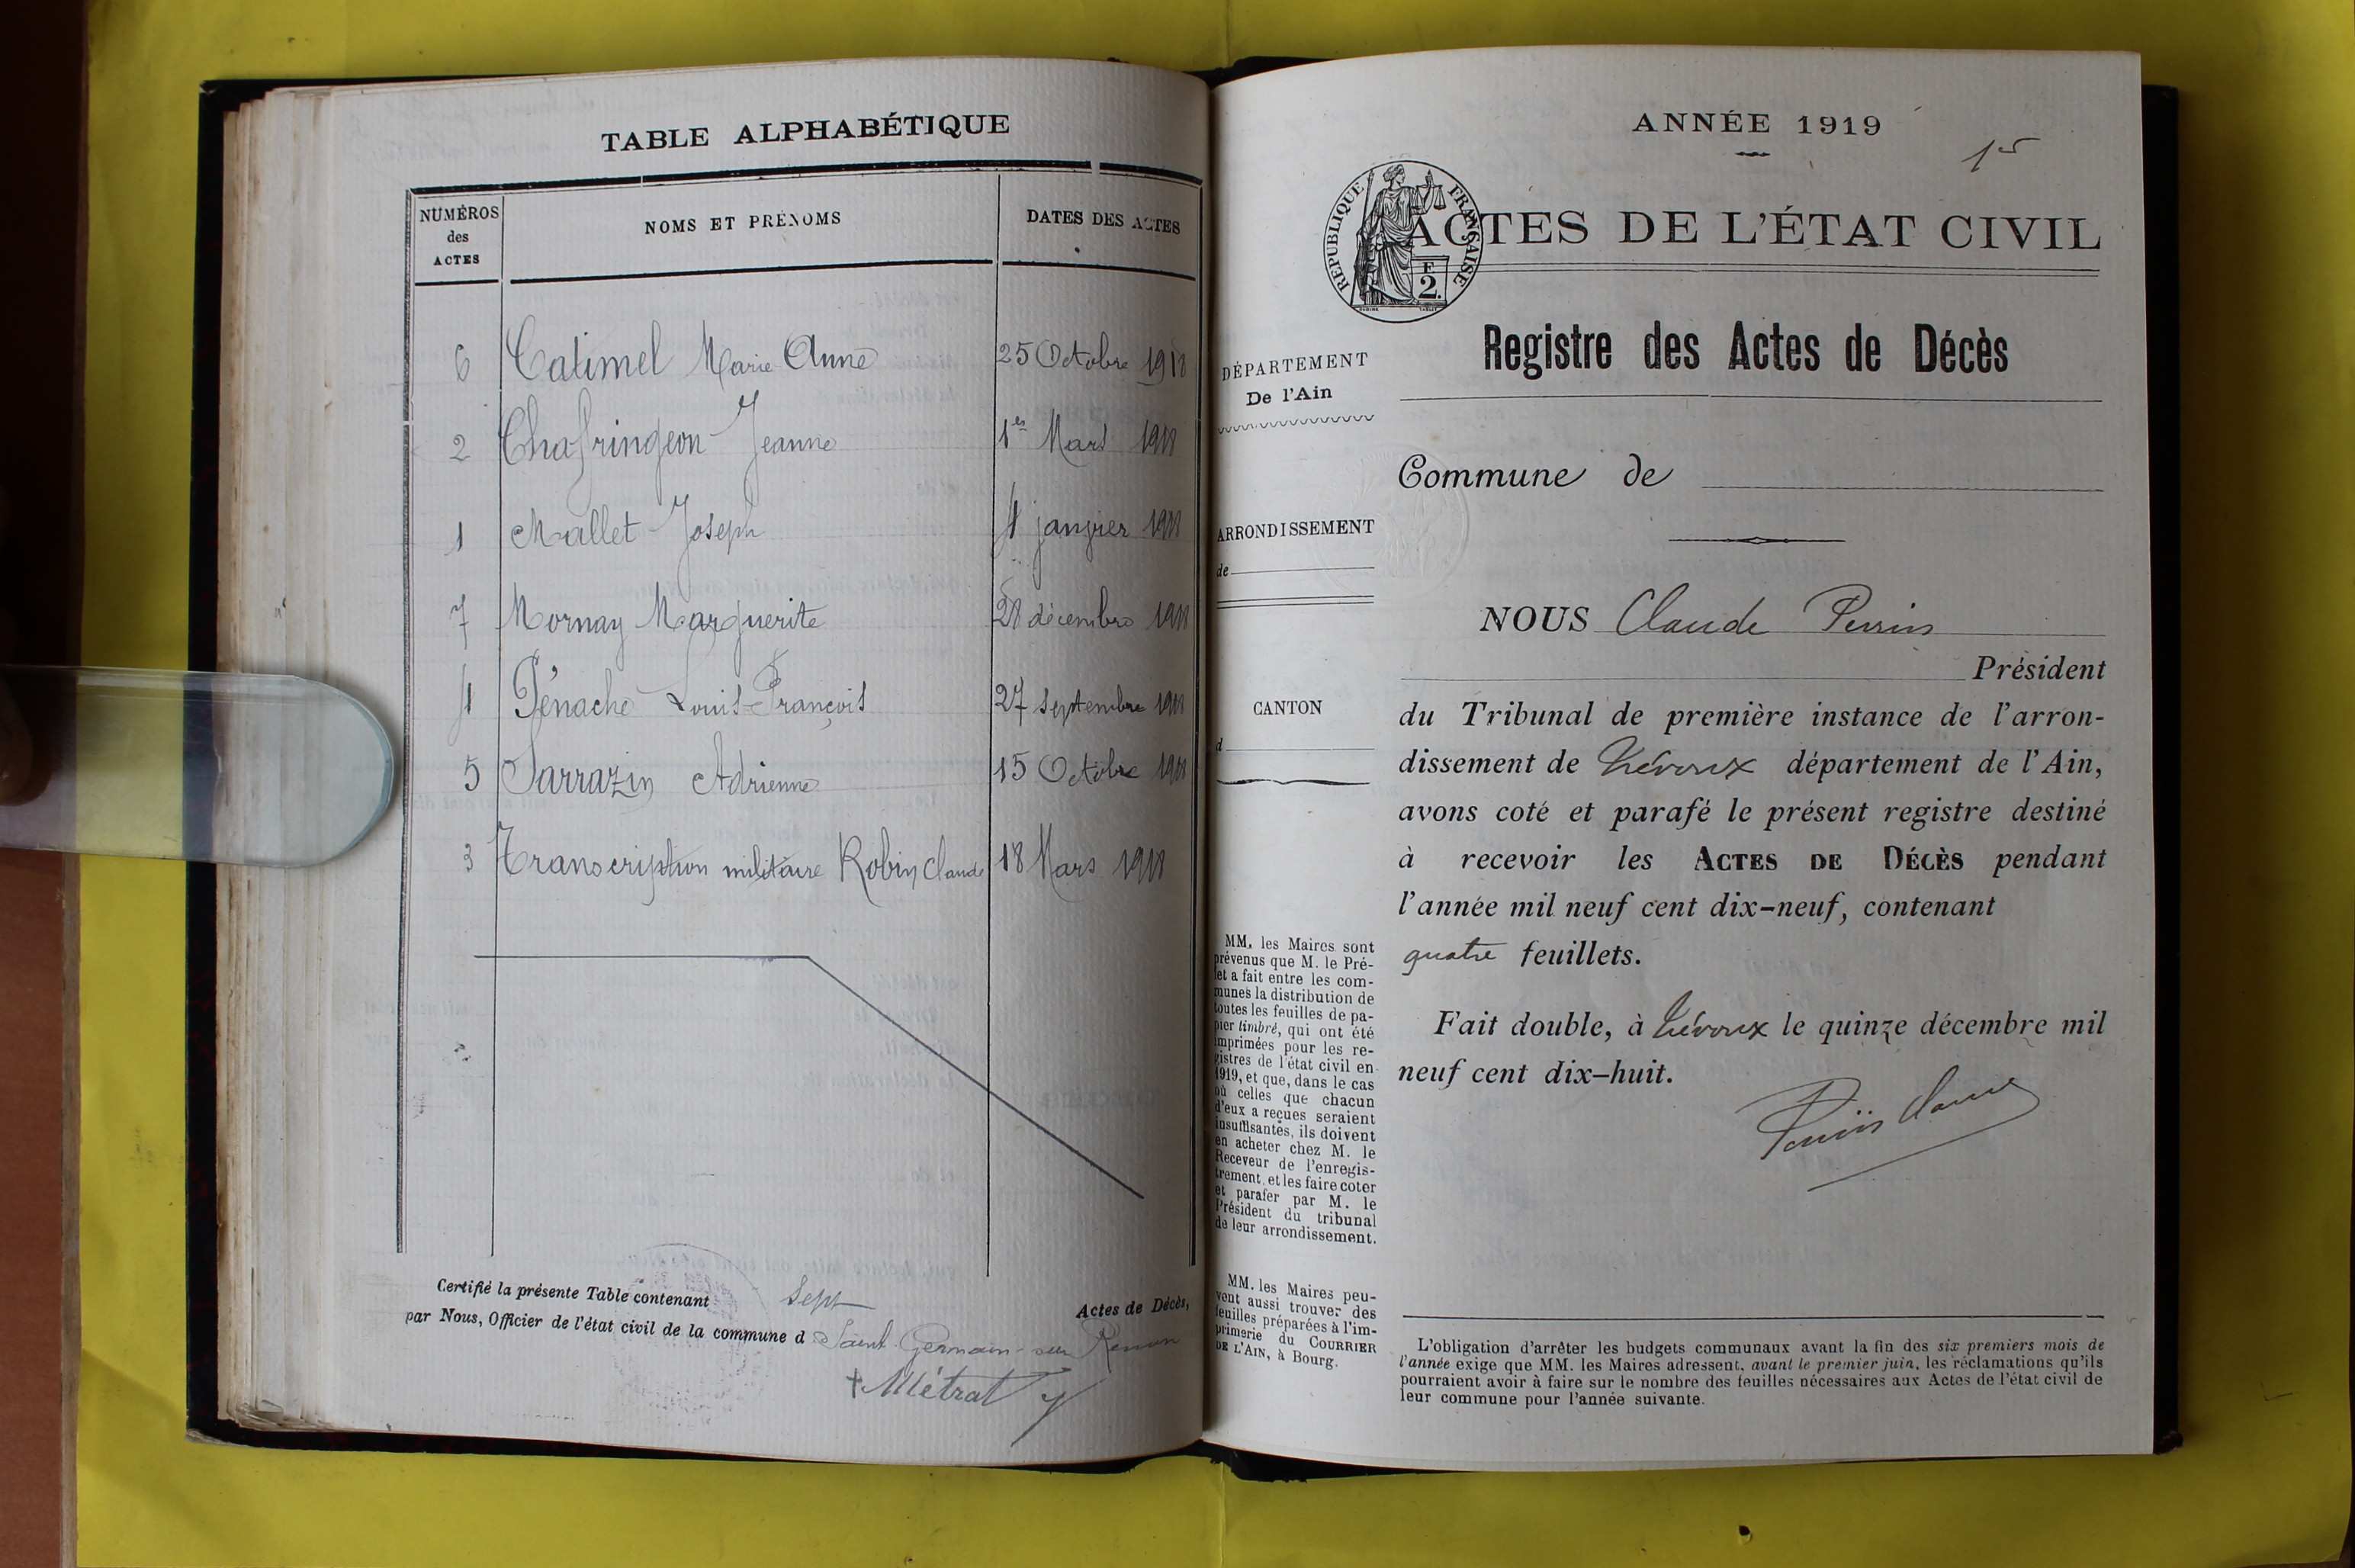 TABLE ALPHABÉTIQUE
NUMÉROS des ACTES | NOMS ET PRÉNOMS | DATES DES ACTES
6 Catimel Marie Anne 25 Octobre 1918
2 Chafringeon Jeanne 1er Mars 1918
1 Mallet Joseph 4 janvier 1918
7 Mornay Marguerite 28 décembre 1918
4 Pénache Louis-François 27 septembre 1918
5 Sarrazin Adrienne 15 Octobre 1918
3 Transcription militaire Robin Claude 18 Mars 1918
Certifié la présente Table contenant Sept Actes de Décès,
par Nous, Officier de l'état civil de la commune d Saint-Germain-sur Renon
Métrat
ANNÉE 1919
15
RÉPUBLIQUE FRANÇAISE
F 2.
ACTES DE L'ÉTAT CIVIL
DÉPARTEMENT
De l'Ain
ARRONDISSEMENT
de
CANTON
d
MM. les Maires sont
prévenus que M. le Pré-
fet a fait entre les com-
munes la distribution de
toutes les feuilles de pa-
pier timbré, qui ont été
imprimées pour les re-
gistres de l'état civil en
1919, et que, dans le cas
où celles que chacun
d'eux a reçues seraient
insuffisantes, ils doivent
en acheter chez M. le
Receveur de l'enregis-
trement, et les faire coter
et parafer par M. le
Président du tribunal
de leur arrondissement.
MM. les Maires peu-
vent aussi trouver des
feuilles préparées à l'im-
primerie du COURRIER
DE L'AIN, à Bourg.
Registre des Actes de Décès
Commune de
NOUS Claude Perrin
Président
du Tribunal de première instance de l'arron-
dissement de Trévoux département de l'Ain,
avons coté et parafé le présent registre destiné
à recevoir les ACTES DE DÉCÈS pendant
l'année mil neuf cent dix-neuf, contenant
quatre feuillets.
Fait double, à Trévoux le quinze décembre mil
neuf cent dix-huit.
L'obligation d'arrêter les budgets communaux avant la fin des six premiers mois de
l'année exige que MM. les Maires adressent, avant le premier juin, les réclamations qu'ils
pourraient avoir à faire sur le nombre des feuilles nécessaires aux Actes de l'état civil de
leur commune pour l'année suivante.